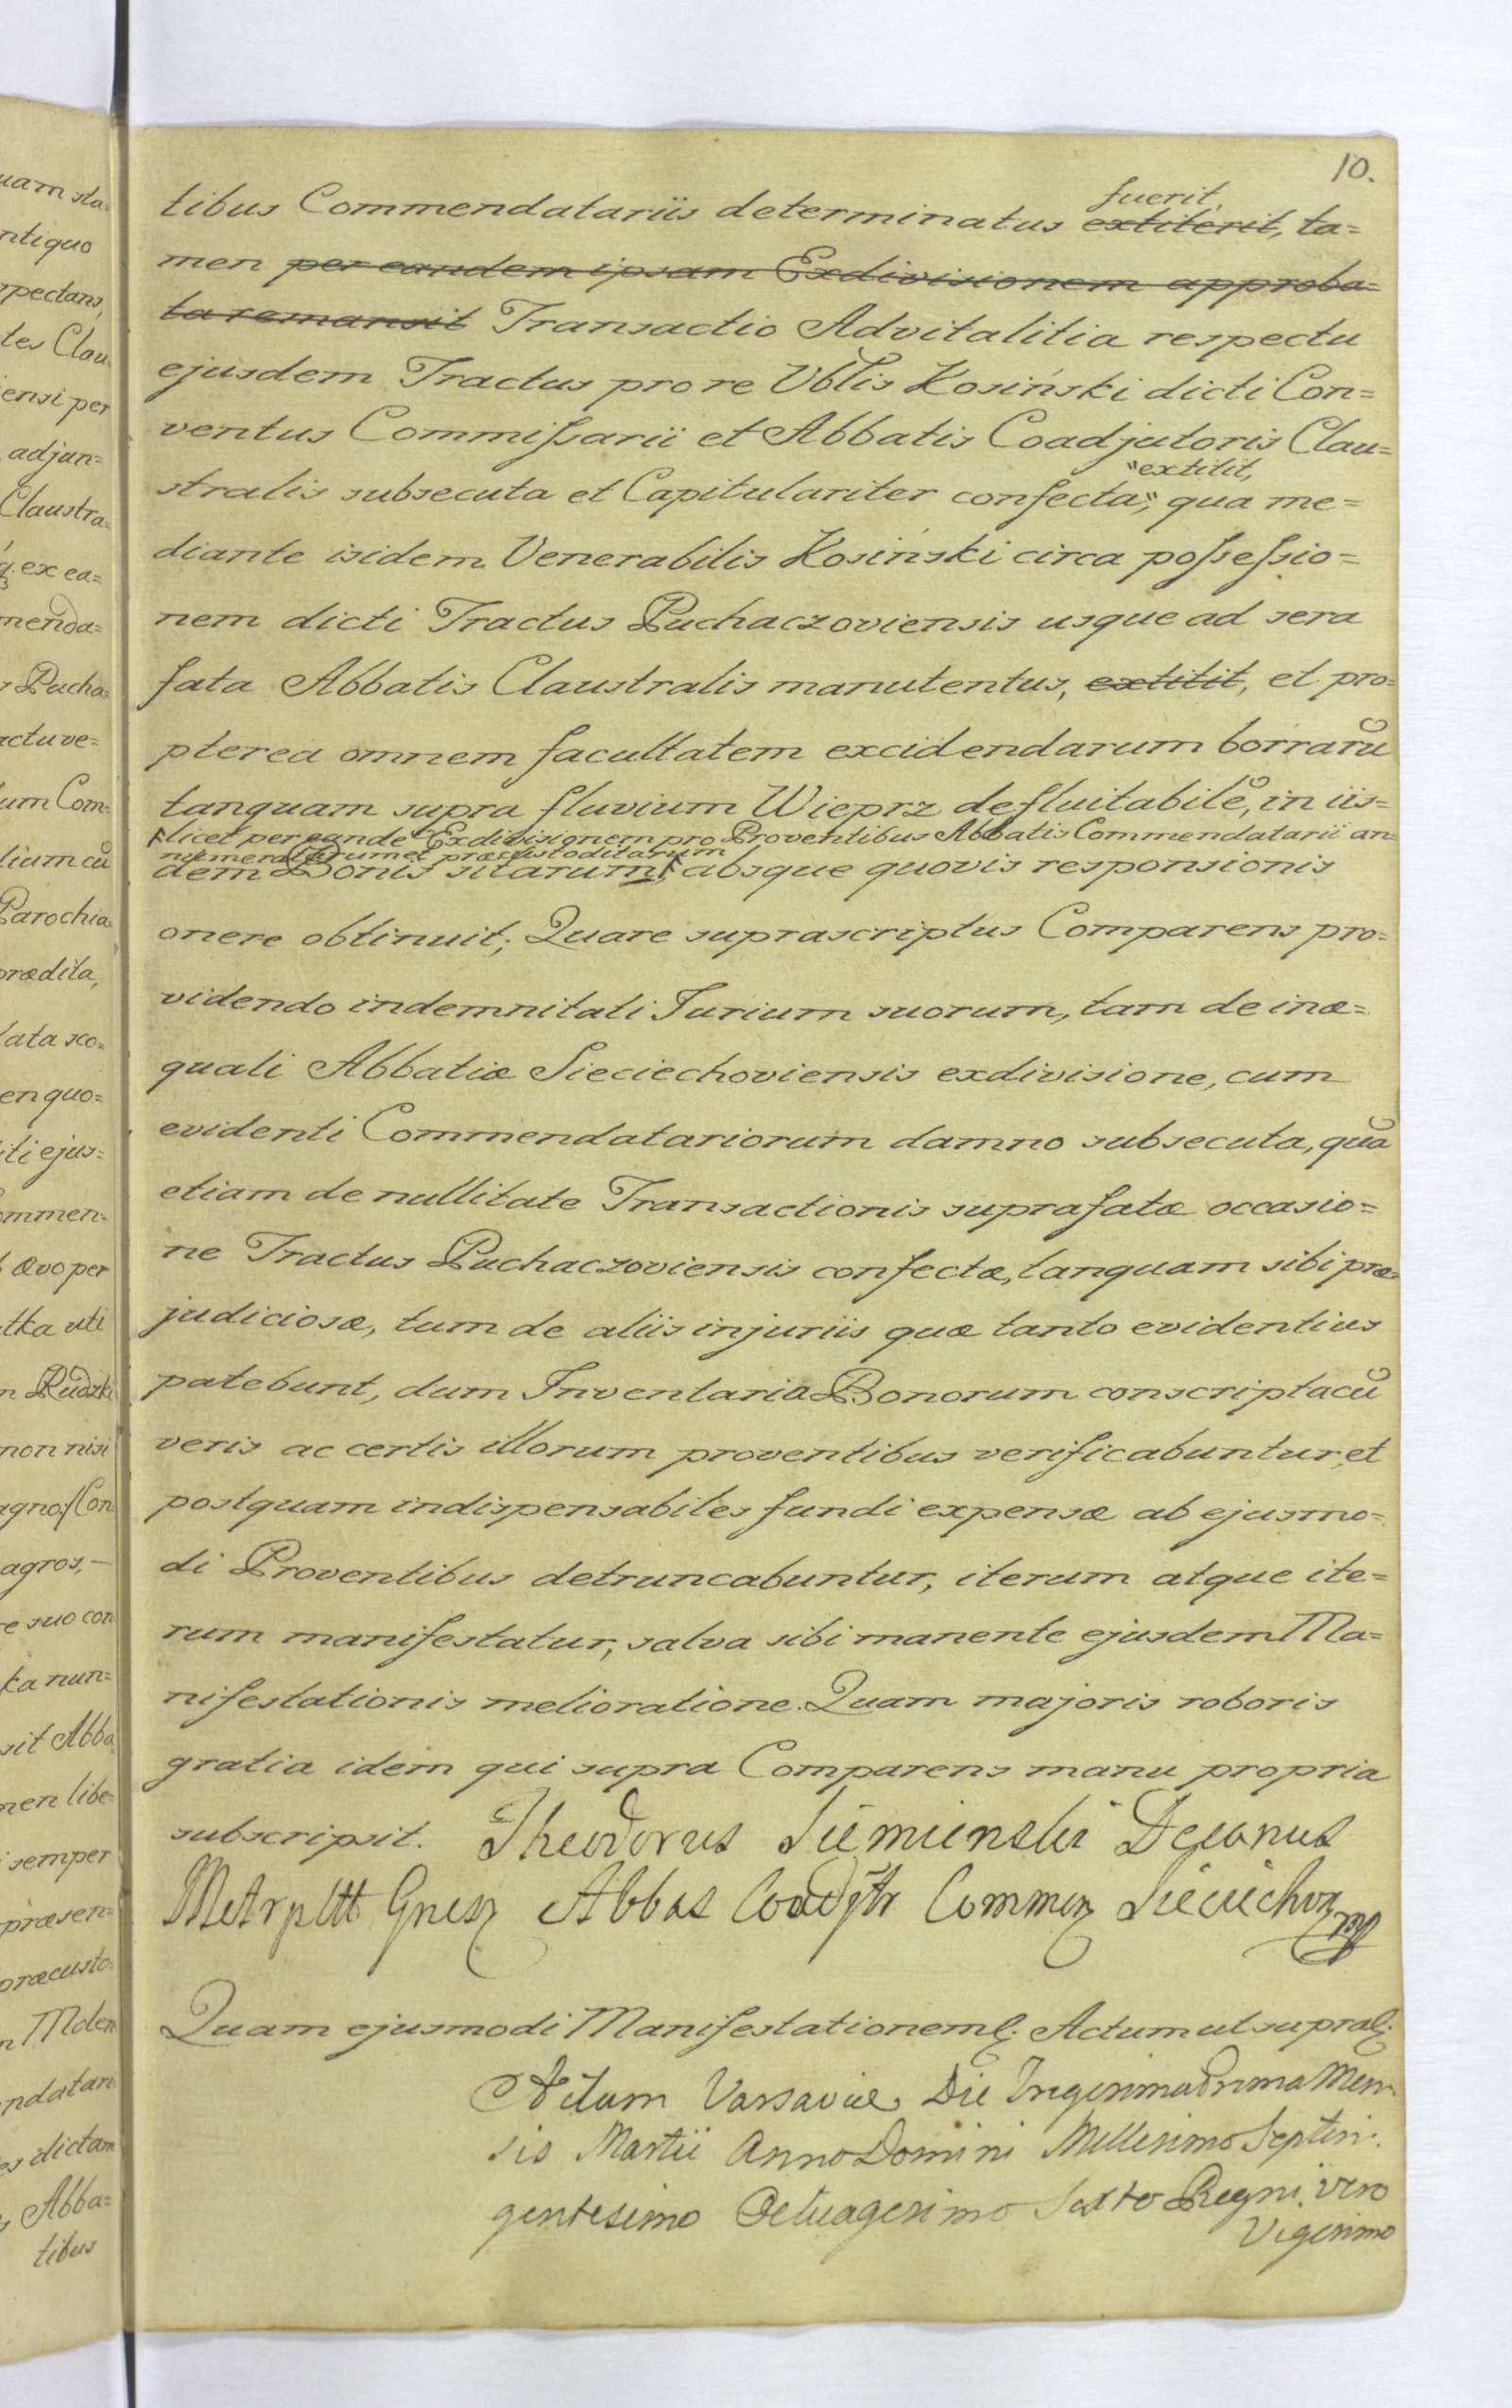 10.
tibus Commendatariis determinatus extiterit, fuerit, ta=
men per eandem ipsam Exdivisionem approba=
ta remansit Transactio Advitalitia respectu
ejusdem Tractus pro re Vblis Kosiński dicti Con=
ventus Commissarii et Abbatis Coadjutoris Clau=
"extitit,
stralis subsecuta et Capitulariter confecta," qua me=
diante isidem Venerabilis Kosiński circa possessio=
nem dicti Tractus Puchaczoviensis usque ad sera
fata Abbatis Claustralis manutentus, extitit, et pro=
pterea omnem facultatem excidendarum borrarū
tanquam supra fluvium Wieprz defluitabilē, in iis=
licet per eandē Exdivisionem pro Proventibus Abbatis Commendatarii an=
numeratarum et præcustoditarum
dem Bonis sitarum, absque quovis responsionis
onere obtinuit; Quare suprascriptus Comparens pro=
videndo indemnitati Jurium suorum, tam de inæ=
quali Abbatiæ Sieciechoviensis exdivisione, cum
evidenti Commendatariorum damno subsecuta, quā
etiam de nullitate Transactionis suprafatæ occasio=
ne Tractus Puchaczoviensis confectæ, tanquam sibi præ=
judiciosæ, tum de aliis injuriis quæ tanto evidentius
patebunt, dum Inventaria Bonorum conscripta cū
veris ac certis illorum proventibus verificabuntur, et
postquam indispensabiles fundi expensæ ab ejusmo=
di Proventibus detruncabuntur, iterum atque ite=
rum manifestatur, salva sibi manente ejusdem Ma=
nifestationis melioratione. Quam majoris roboris
gratia idem qui supra Comparens manu propria
subscripsit. Theodorus Siemienski Decanus
Metrpltt Gnesz Abbas Coadjtr Commen Sieciechov mp
Quam ejusmodi Manifestationem Actum ut supra
Actum Varsaviæ Die Trigesima Prima Men=
sis Martii Anno Domini Millesimo Septin=
gentesimo Octuagesimo Sexto Regni vero
Vigesimo
uam sta=
ntiquo
spectans,
tes Clau=
iensi per
adjun=
Claustra=
ex ea=
menda=
Pucha=
actu ve=
um Com=
lium cū
Parochia=
prædita,
lata sco=
en quo=
iti ejus=
ommen=
ævo per
tka uti
n Rudzki
non nisi
agnos Con
agros, –
re suo con
ka nun=
sit Abba
men libe=
semper
præsen=
præcusto=
n Mdem
ndatari
es dictam
Abba=
tibus